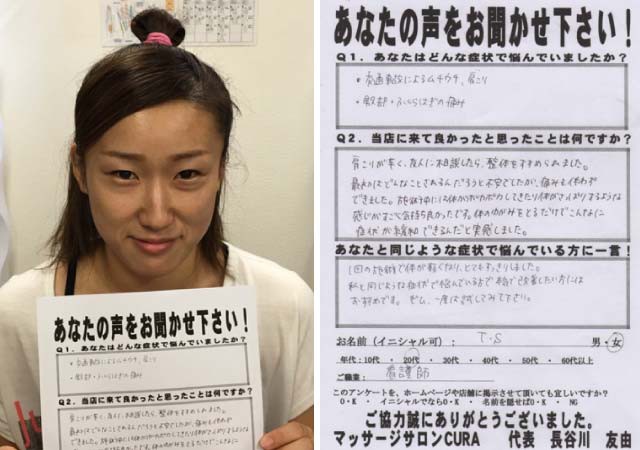 あなたの声をお聞かせ下さい！
Q1．あなたはどんな症状で悩んでいましたか？
・交通事故によるムチウチ、肩こり
・殿部・ふくらはぎの痛み
Q2．当店に来て良かったと思ったことは何ですか？
肩こりが
あなたの声をお聞かせ下さい！
Q1．あなたはどんな症状で悩んでいましたか？
・交通事故によるムチウチ、肩こり
・殿部・ふくらはぎの痛み
Q2．当店に来て良かったと思ったことは何ですか？
肩こりが辛く、友人に相談したら、整体をすすめられました。
最初はどんなことされるんだろうと不安でしたが、痛みも伴わず
できました。施術中には体がポカポカしてきたり体がさっぱりするような
感じがすごく気持ち良かったです。体のゆがみをとるだけでこんなに
症状が緩和できるんだと実感しました。
あなたと同じような症状で悩んでいる方に一言！
1回の施術で体が軽くなり、とてもすっきりしました。
私と同じような症状で悩んでいる方で
お勧めです。ぜひ、一度は試してみて下さい。
お名前（イニシャル可）： T.S 男・女
年代：10代 ・ 20代 ・ 30代 ・ 40代 ・ 50代 ・ 60代以上
ご職業： 看護師
このアンケートを、ホームページや店舗に掲示させて頂いても宜しいですか？
O・K ・ イニシャルでならO・K ・ 名前を隠せばO・K ・ NG
ご協力誠にありがとうございました。
マッサージサロンCURA 代表 長谷川 友由